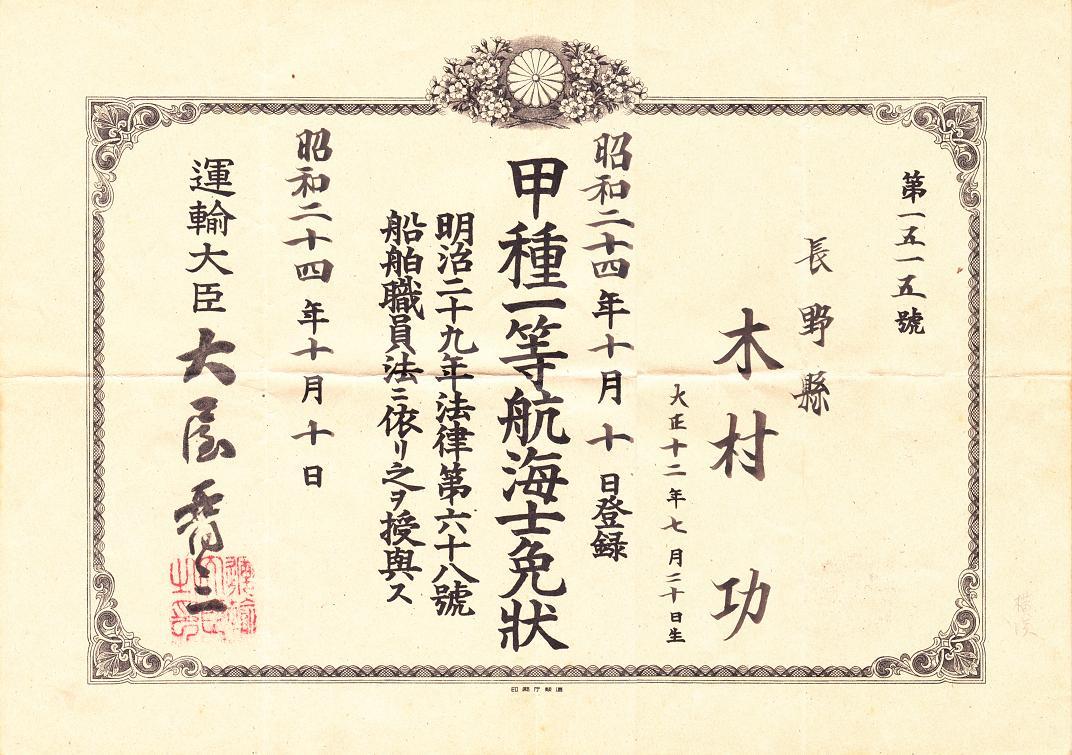 第一五一五號
長野縣
木村功
大正十二年七月二十日生
昭和二十四年十月十日登録
甲種一等航海士免狀
明治二十九年法律第六十八號
船舶職員法ニ依リ之ヲ授與ス
昭和二十四年十月十日
運輸大臣 大屋晋三